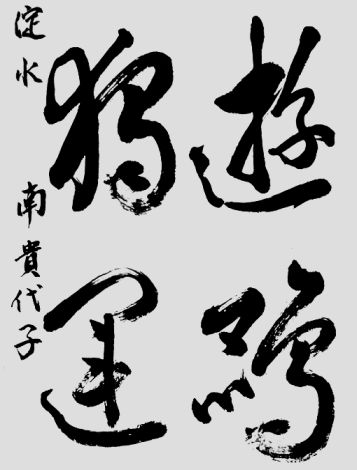 遊鵾
獨運
淀水 南貴代子